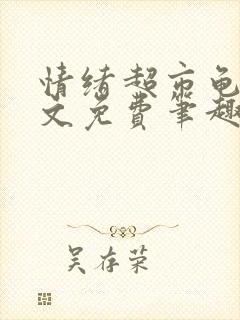 情绪超市龟
文免费笔趣
吴存荣